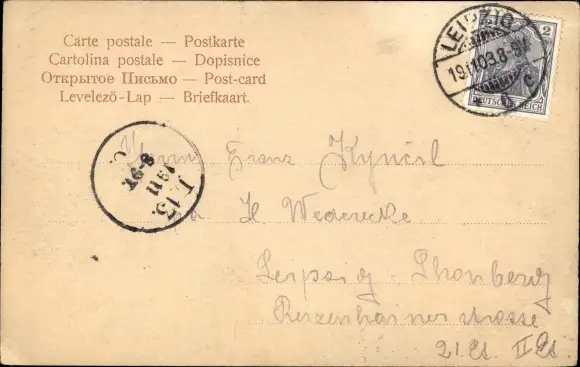 Carte postale — Postkarte
Cartolina postale — Dopisnice
Открытое Письмо — Post-card
Levelező-Lap — Briefkaart.
LEIPZIG
19.11.03.8-9V.
2
DEUTSCHES REICH
L. 13.
19 11
8-9V.
Herrn Franz Kynčil
H Wedereke
Leipzig - Thonberg
Reizenhainer strasse
21. Et. II Et.